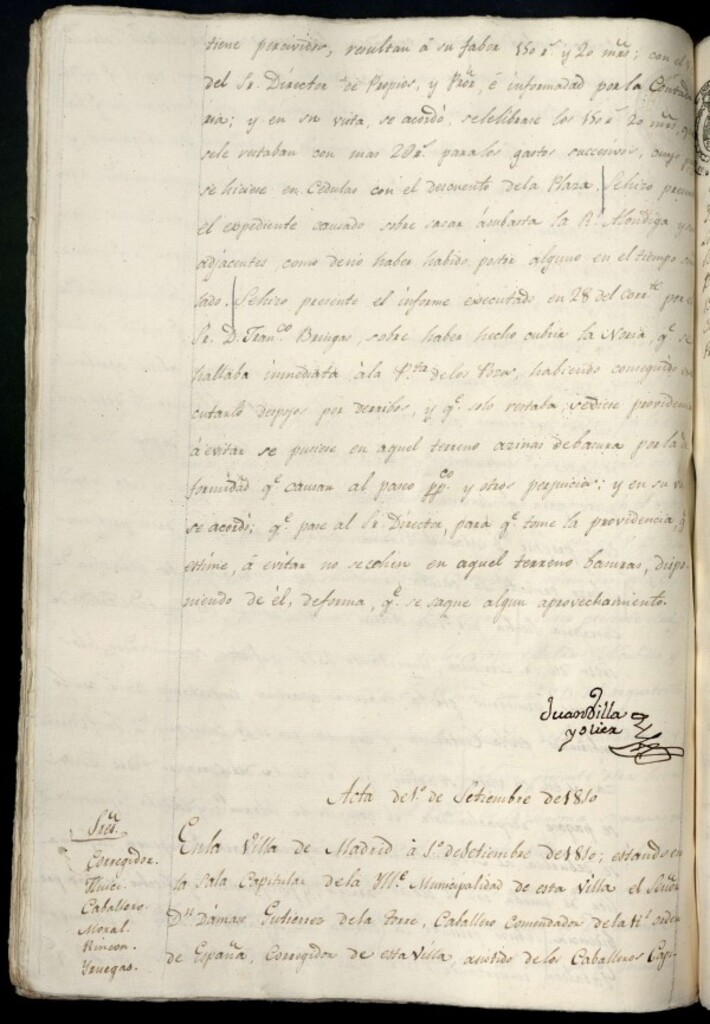 tiene percividos, resultan á su fabor 150 r.s y 20 mrs; con el
del Sr. Director de Propios, y Pror, é informadad por la Contadu
ria; y en su vista, se acordó, selelibrasen los 150 r.s 20 mrs,
sele restaban con mas 20 r.s para los gastos succesivos, cuyo
se hiciese en Cedulas con el descuento dela Plaza. Sehizo presente
el expediente causado sobre sacar ásubasta la R.l Alondiga y
adjacentes, como deno haber habido postor alguno en el tiempo
sado. Sehizo presente el informe executado en 28 del corr.te por el
Sr. D. Fran.co Bringas, sobre haber hecho cubrir la Noria, q.e se
hallaba inmediata ála P.ta delos Pozos, habiendo conseguido
cutarlo despojos por derribos, y q.e solo restaba, sediese providencia
á evitar se pusiese en aquel terreno debasura por la
formidad q.e causan al paseo pp.co y otros perjuicios; y en su
se acordó; q.e pase al Sr. Director, para q.e tome la providencia, q.e
estime, á evitar no seechen en aquel terreno basuras, dispo-
niendo de él, deforma, q.e se saque algun aprovechamiento.
Juan Villa
y Olier
Acta del 1.º de Setiembre de 1810
Sres.
Corregidor.
Caballero.
Moral.
Rincon.
Yruegas.
Enla Villa de Madrid á 1.º de Setiembre de 1810; estando en
la Sala Capitular dela Yll.e Municipalidad de esta Villa el Señor
D.n Dámaso Gutiérrez dela Torre, Caballero Comendador dela R.l orden
de España, Corregidor de esta Villa, asistido delos Caballeros Capi-